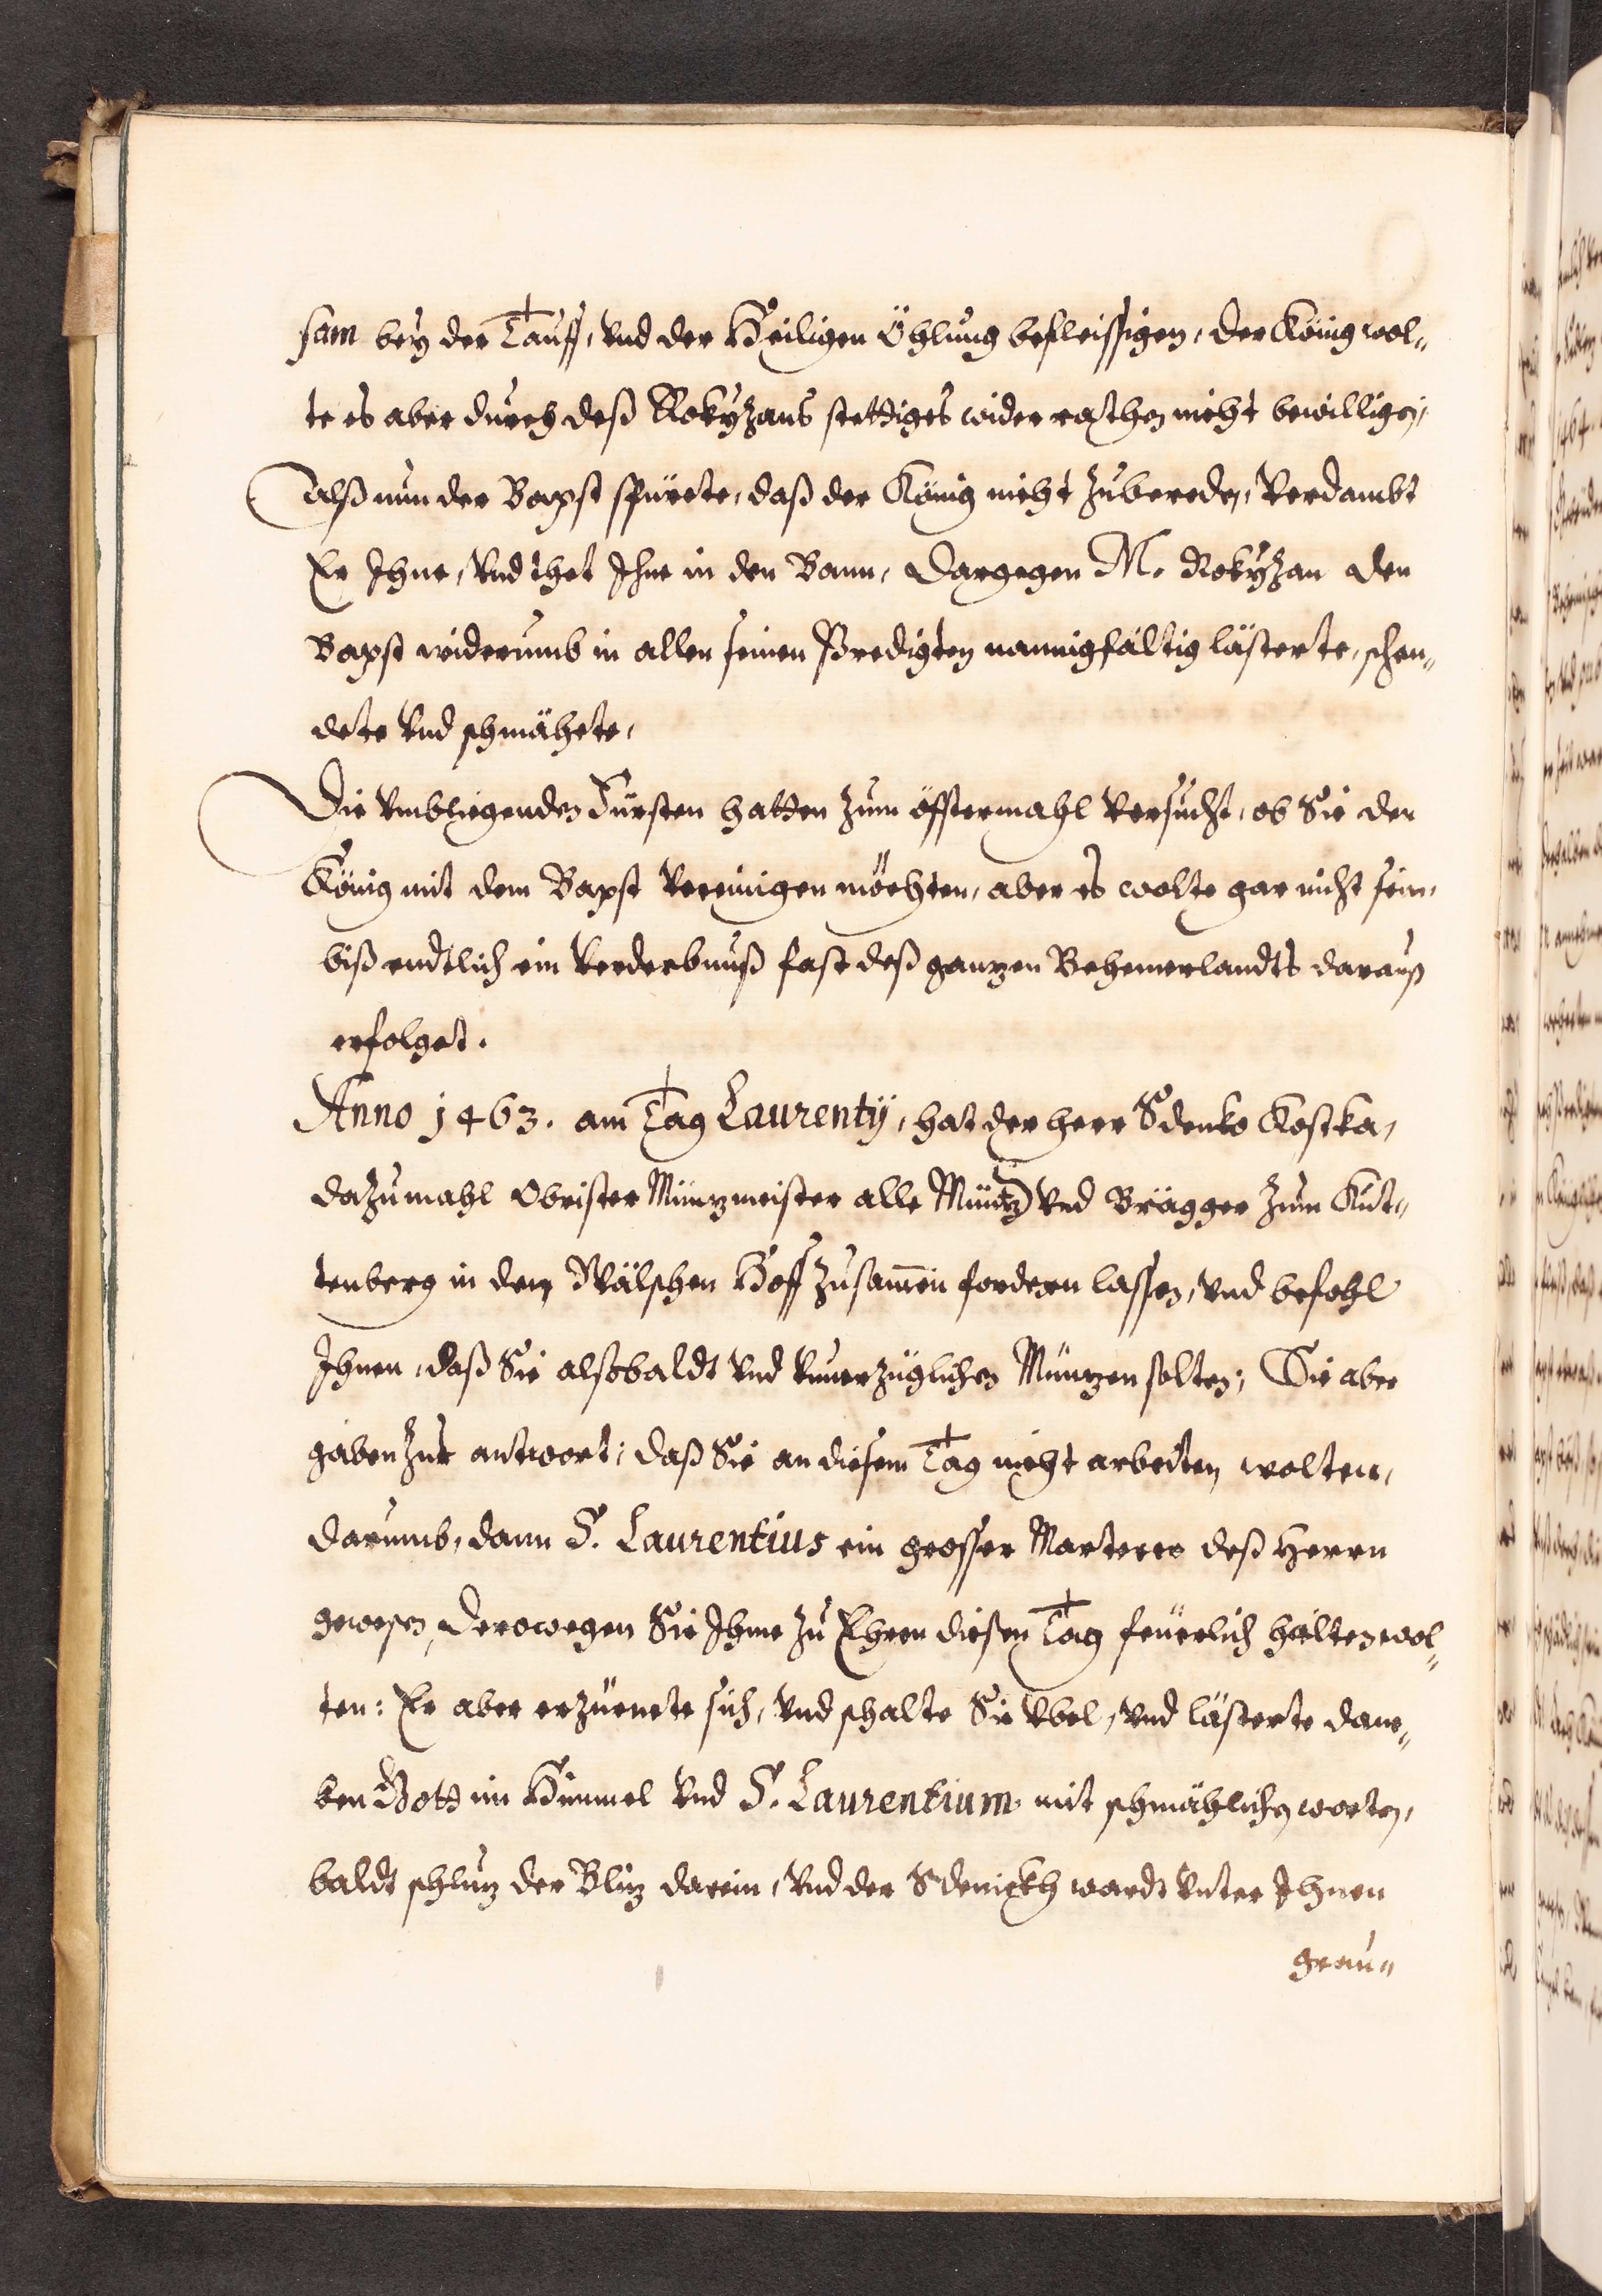 sam bey der Tauff, vnd der Heiligen Öhlung befleissigen, der König wol„
te es aber durch deß Rokyzans stettiges widerrathen nicht bewilligen,
Alß nun der Bapst spürete, daß der König nicht zubereden, verdambt
Er Ihne, vnd thet Ihne in den Bann, dargegen M. Rokyzan den
Bapst widerumb in allen seinen Predigten mannigfältig lästerte, schen„
dete vnd schmähete,
Die vmbliegenden Fürsten hatten zum öfftermahl versucht, ob Sie der
König mit dem Bapst vereinigen möchten, aber es wolte gar nicht sein,
biß endtlich ein verderbnuß fast deß ganzen Behemerlandts darauß
erfolget.
Anno 1463. am Tag Laurentÿ, hat der herr Sdenko Kostka,
dazumahl Obrister Münzmeister alle Müntz vnd Brägger zum Kut„
tenberg in den Wälschen Hoff zusam̄en fordern lassen, vnd befohl
Ihnen, daß Sie alsobaldt vnd vnuerzüglichen Münzen solten; Sie aber
gaben zur antwort; daß Sie an diesem Tag nicht arbeiten wolten,
darumb, dann S. Laurentius ein grosser Marterer deß Herrn
gewesen, derowegen Sie Ihme zu Ehren diesen Tag feüerlich halten wol„
ten: Er aber erzürnete sich, vnd schalte Sie vbel, vnd lästerte dane„
ben Gott im Himmel vnd S. Laurentium mit schmählichen worten,
baldt schlug der Bliz darein, vnd der Sdenickh wardt vnter Ihnen
grau„